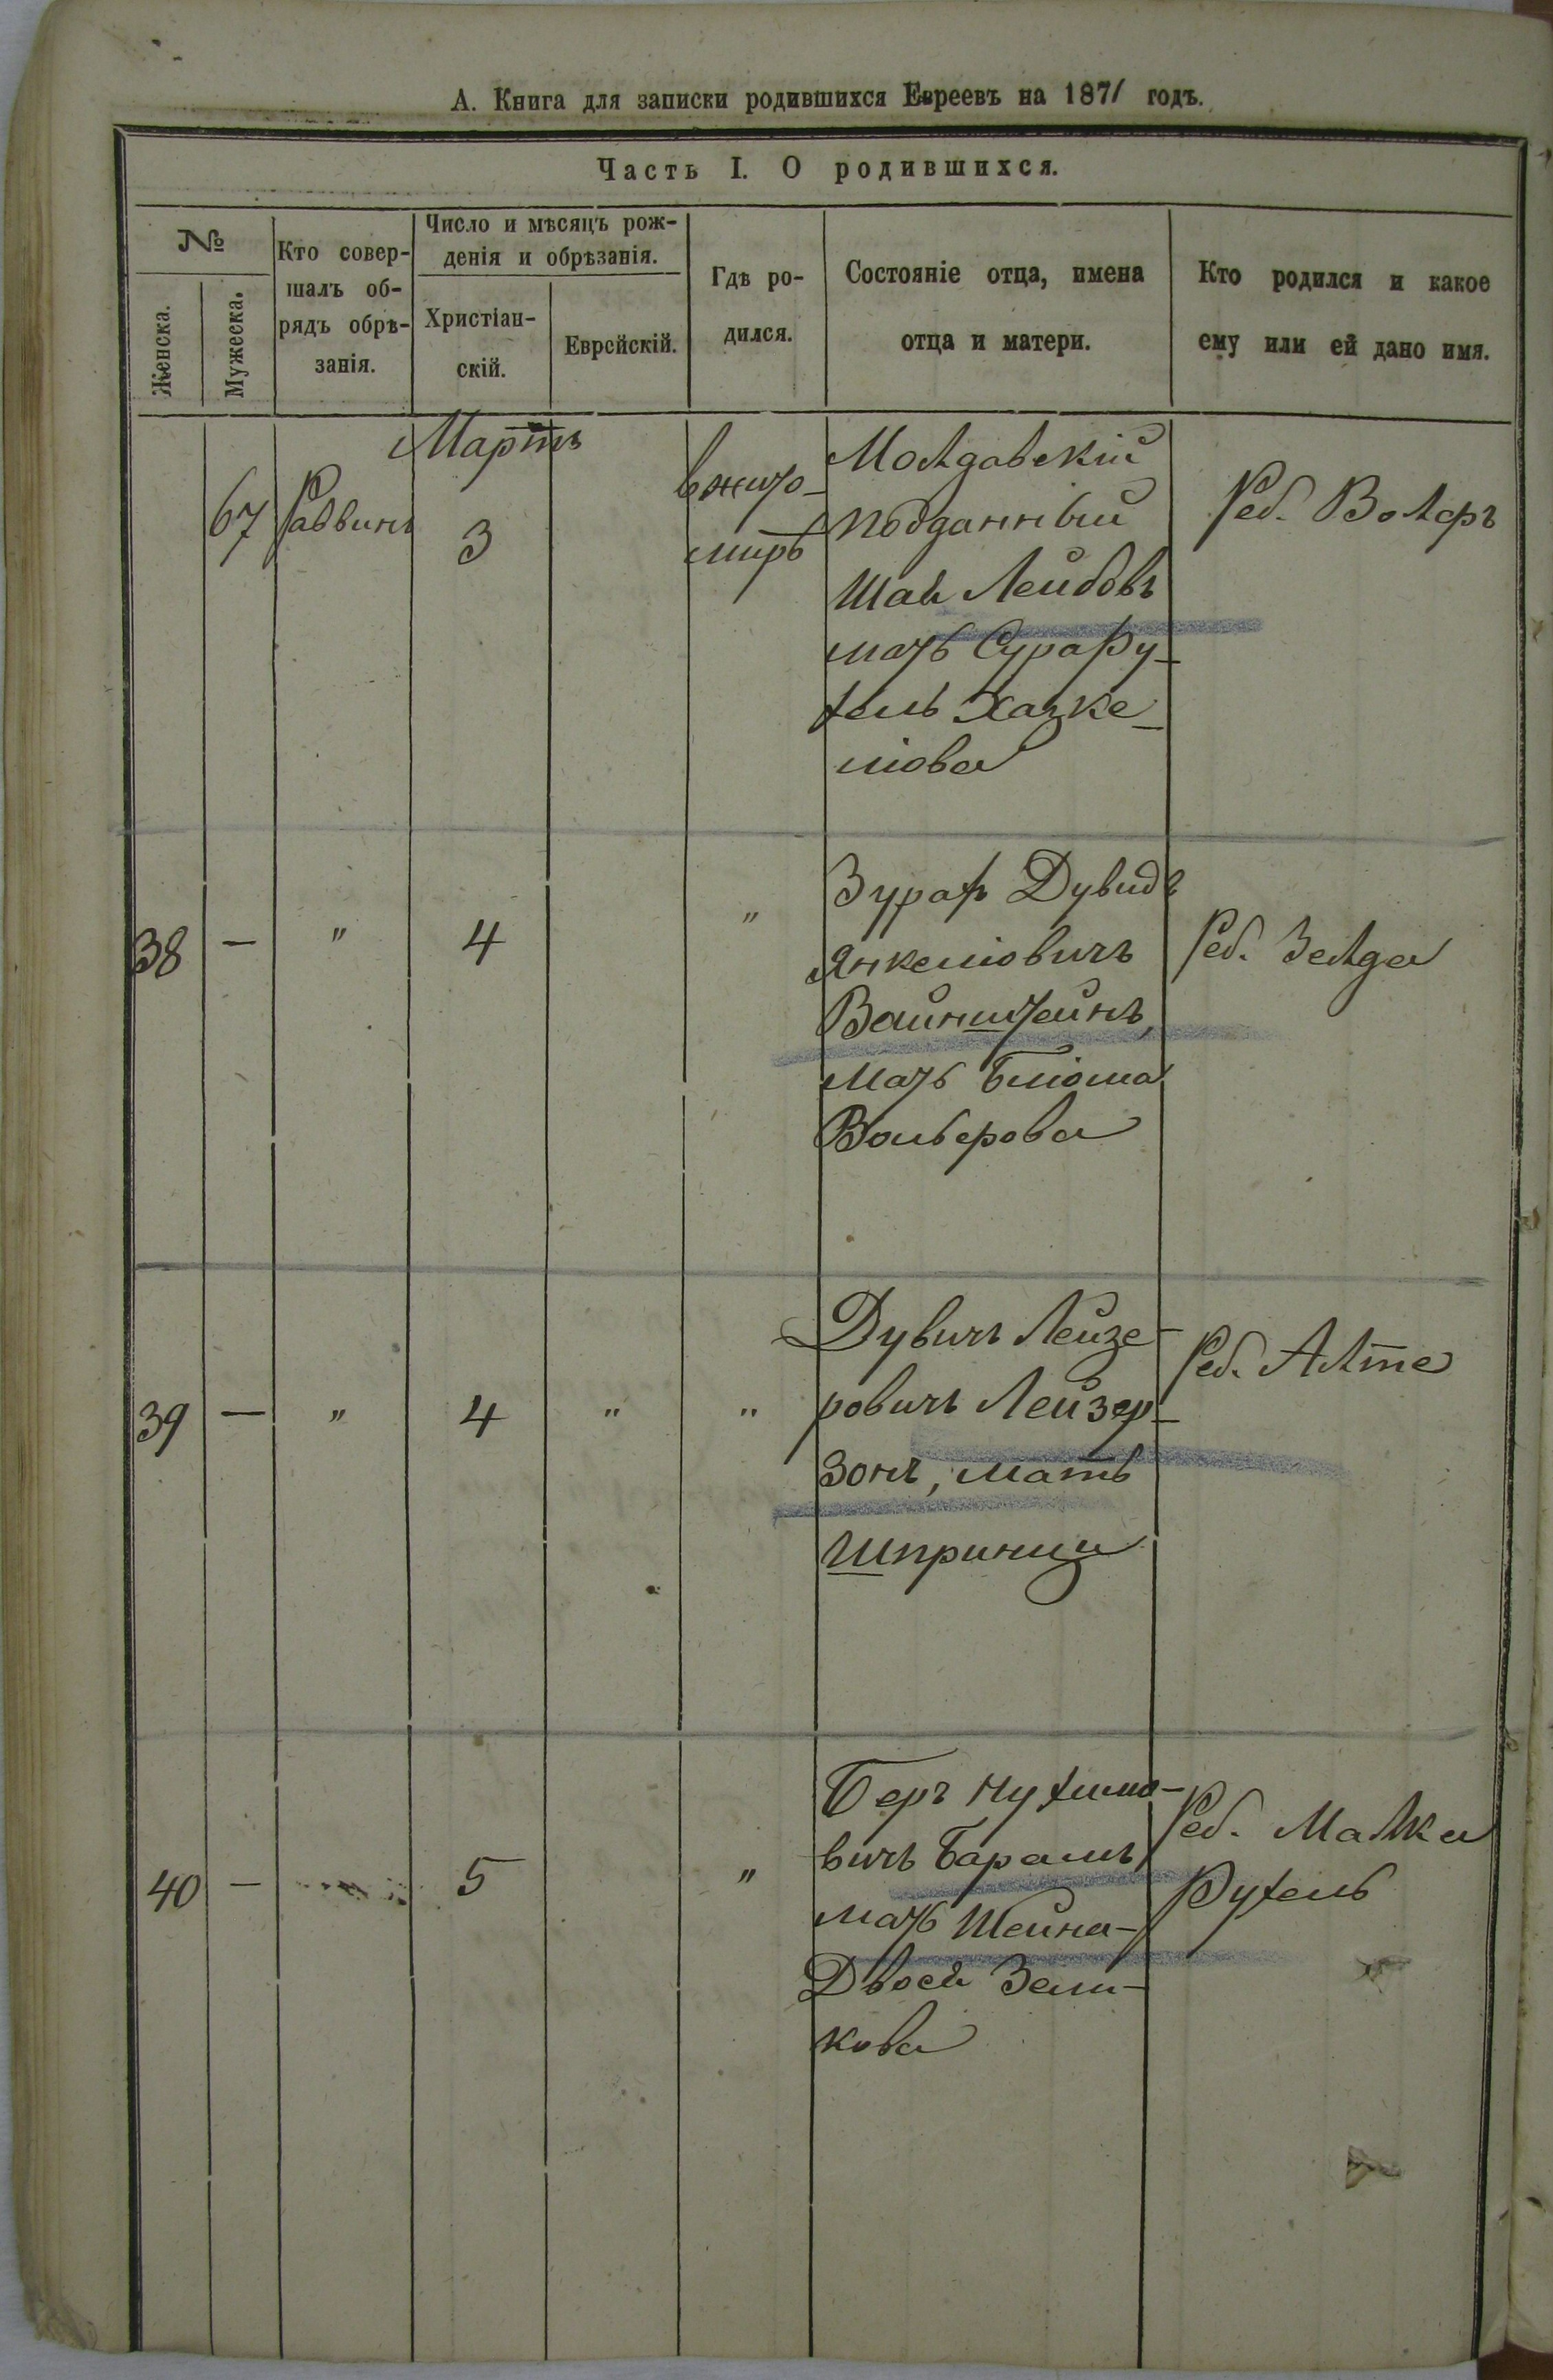 А. Книга для записки родившихся Евреевъ на 1871 годъ.
Часть I. О родившихся.
№
Женска.
Мужеска.
Кто совер-
шалъ об-
рядъ обрѣ-
занія.
Число и мѣсяцъ рож-
денія и обрѣзанія.
Христіан-
скій.
Еврейскій.
Гдѣ ро-
дился.
Состояніе отца, имена
отца и матери.
Кто родился и какое
ему или ей дано имя.
Мартъ
67 Раввинъ 3
в жито-
мирѣ
Молдавскій
подданный
Шая Лейбовъ
мать Сура Ру-
хель Хацке-
лiова
Реб. Волфъ
38 — " 4 "
Дувидъ
Янкелiовичъ
Вайнштейнъ,
мать Блюма
Вольфова
Реб. Зелда
39 — " 4 " "
Дувичъ Лейзе-
ровичъ Лейзер-
зонъ, мать
Шпринца
Реб. Алте
40 — 5 "
Беръ Нухимо-
вичъ Барамъ
мать Шейна-
Двося Зели-
кова
Реб. Малка
Рухель